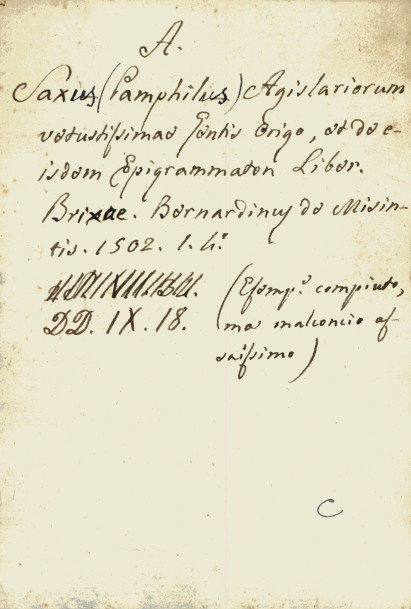 A.
Saxus (Pamphilus) Agislariorum
vetustissimae Gentis Origo, et de e-
isdem Epigrammaton Liber.
Brixae. Bernardinus de Misin-
tis. 1502. 1. 4.º
DD. IX. 18.
(Esemp.º compiuto,
ma malconcio as
saissimo)
C